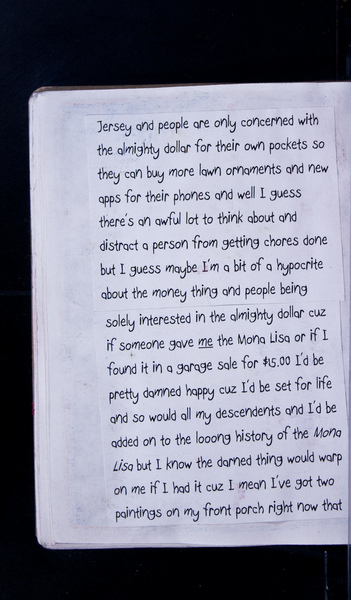 Jersey and people are only concerned with
the almighty dollar for their own pockets so
they can buy more lawn ornaments and new
apps for their phones and well I guess
there's an awful lot to think about and
distract a person from getting chores done
but I guess maybe I'm a bit of a hypocrite
about the money thing and people being
solely interested in the almighty dollar cuz
if someone gave me the Mona Lisa or if I
found it in a garage sale for $15.00 I'd be
pretty damned happy cuz I'd be set for life
and so would all my descendents and I'd be
added on to the looong history of the Mona
Lisa but I know the darned thing would warp
on me if I had it cuz I mean I've got two
paintings on my front porch right now that